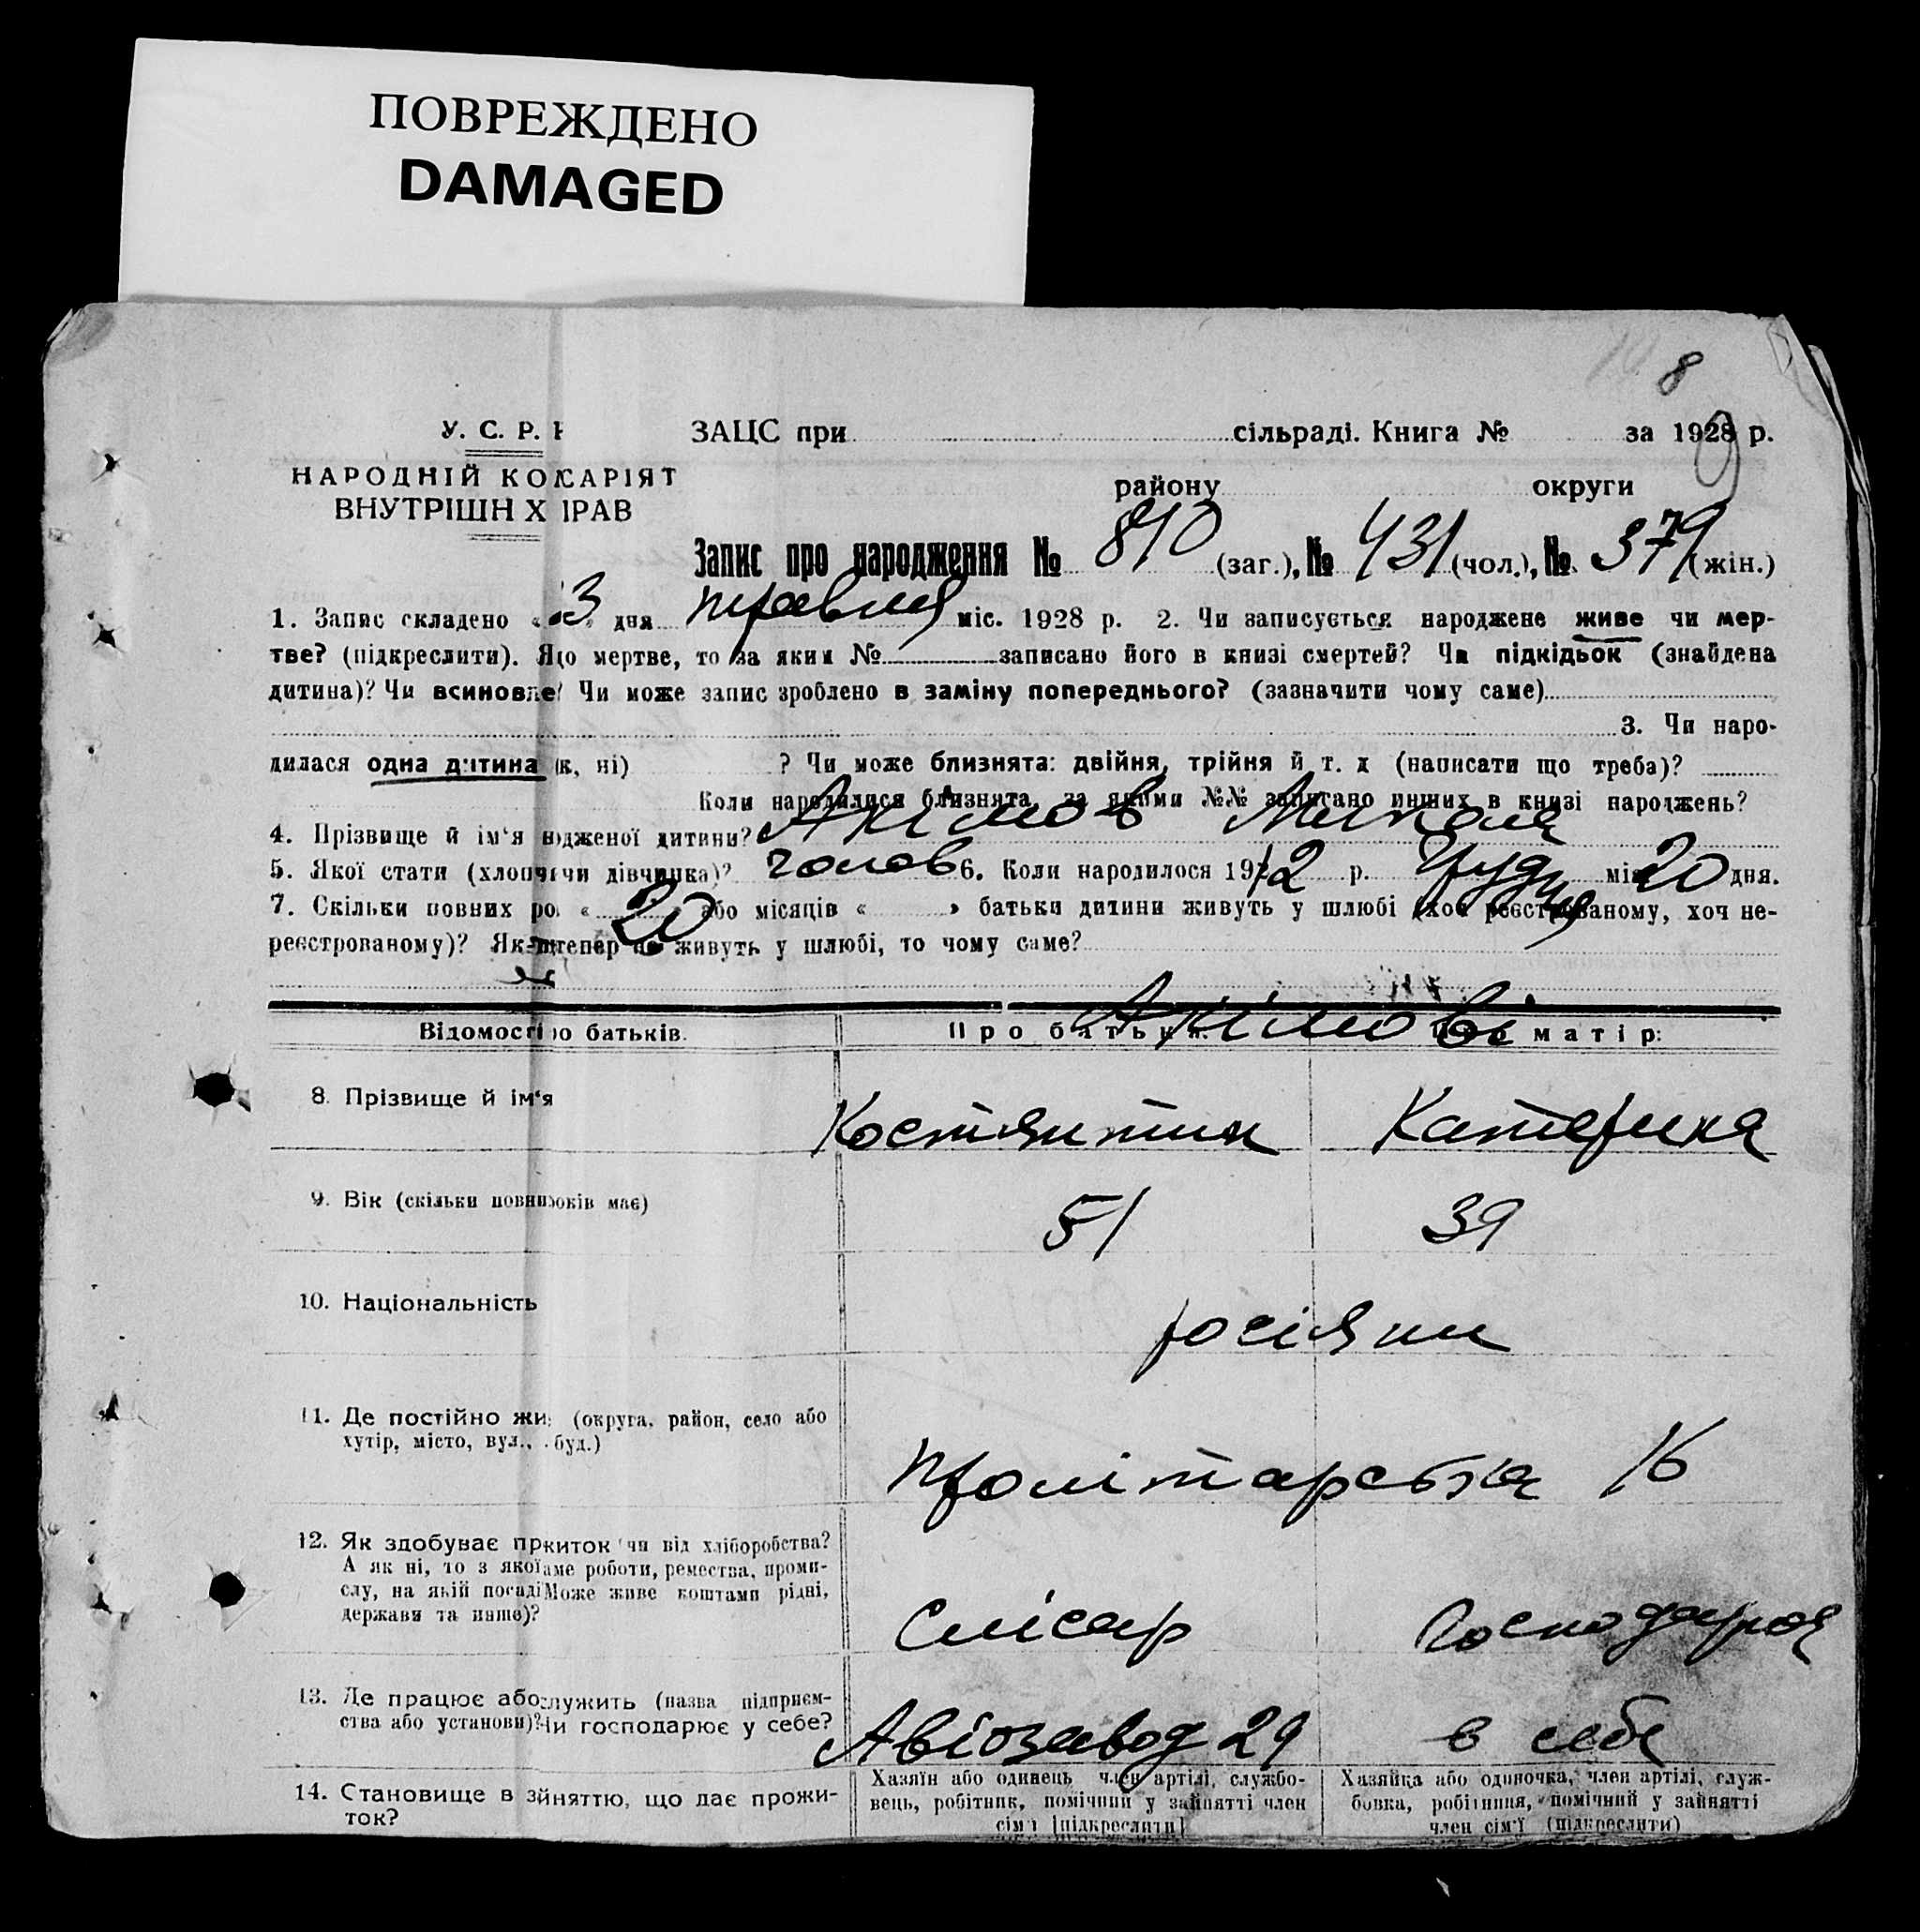 ПОВРЕЖДЕНО
DAMAGED
8
9
У. С. Р. Р ЗАЦС при сільраді. Книга № за 1928 р.
НАРОДНІЙ КОМІСАРІЯТ
ВНУТРІШН Х ПРАВ
району округи
Запис про народження № 810 (заг.), № 431 (чол.), № 379 (жін.)
1. Запис складено « 3 » дня травня міс. 1928 р. 2. Чи записується народжене живе чи мер-
тве? (підкреслити). Я що мертве, то за яким № записано його в книзі смертей? Чи підкідьок (знайдена
дитина)? Чи всиновле ? Чи може запис зроблено в заміну попереднього? (зазначити чому саме)
3. Чи наро-
дилася одна дитина ( к, ні) ? Чи може близнята: двійня, трійня й т. д (написати що треба)?
Коли народилися близнята, за якими №№ записано инших в книзі народжень?
4. Прізвище й ім‘я н одженої дитини? Акімов Микола
5. Якої статі (хлопч чи дівчинка)? чолов 6. Коли народилося 1912 р. Грудня міс 20 дня.
7. Скільки повних ро « 20 » або місяців « » батьки дитини живуть у шлюбі (хоч реєстрованому, хоч не-
реєстрованому)? Як тепер не живуть у шлюбі, то чому саме?
Відомості о батьків. Про батька: Акімові Про матір:
8. Прізвище й ім‘я Костянтин Катерина
9. Вік (скільки повних років має) 51 39
10. Національність росіяни
11. Де постійно жи (округа, район, село або
хутір, місто, вул., буд.) Пролітарська 16
12. Як здобуває пр иток чи від хліборобства?
А як ні, то з якої аме роботи, ремества, проми-
слу, на якій посаді Може живе коштами рідні,
держави та инше)? Слісар Господарює
13. Де працює або служить (назва підприєм-
ства або установи)? Чи господарює у себе? Авіозавод 29 в себе
14. Становище в з йняттю, що дає прожи-
ток?
Хазяїн або одинець, член артілі, службо-
вець, робітник, помічний у зайнятті член
сім‘ї [підкреслити]
Хазяйка або одиночка, член артілі, служ-
бовка, робітниця, помічний у зайнятті
член сім‘ї (підкреслити)